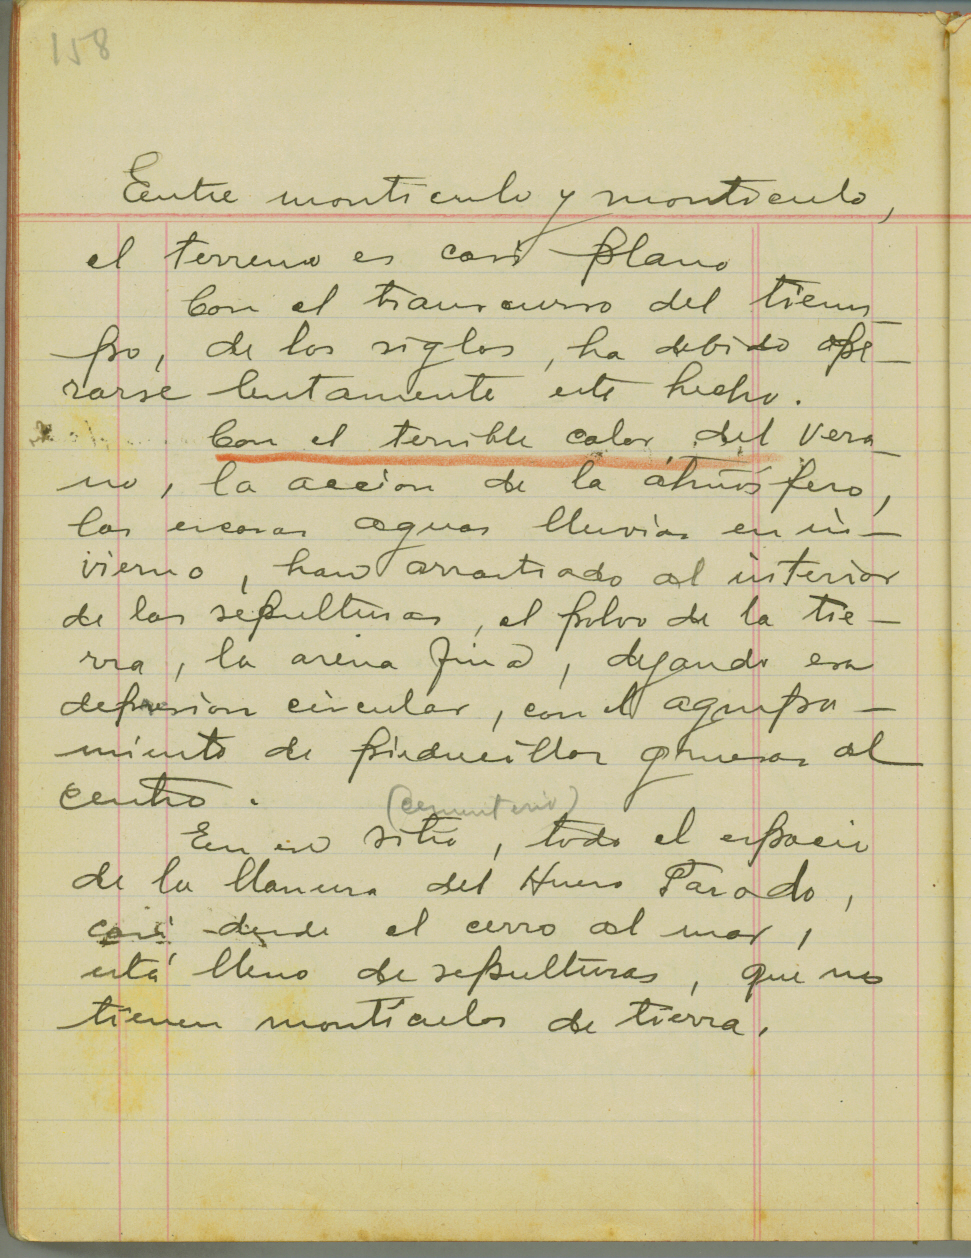 158
Entre monticulo y monticulo,
el terreno es casi plano
Con el transcurso del tiem-
po, de los siglos, ha debido ope-
rarse lentamente este hecho.
Con el terrible calor, del Vera-
no, la accion de la atmósfera,
las escasas aguas lluvias en in-
vierno, han arrastrado al interior
de las sepulturas, el polvo de la tie-
rra, la arena fina, dejando esa
depresion circular, con el agrupa-
miento de piedrecillas gruesas al
centro.
(cementerio)
En ese sitio, todo el espacio
de la llanura del Hueso Parado,
casi desde el cerro al mar,
está lleno de sepulturas, que no
tienen monticulos de tierra.